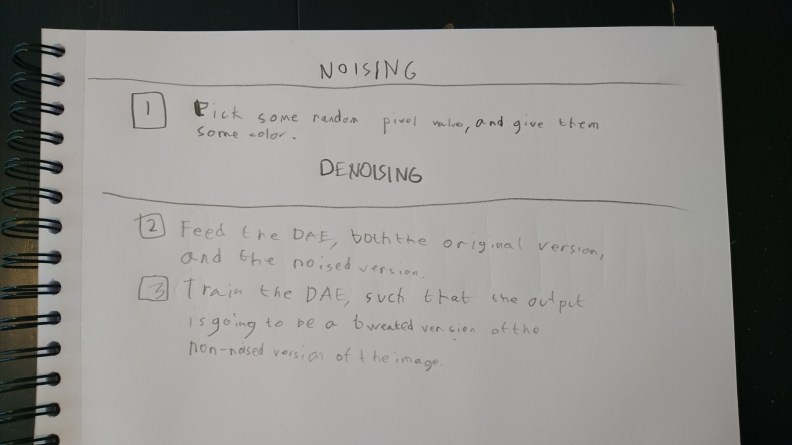 NOISING
1 Pick some random pixel value, and give them
some color.
DENOISING
2 Feed the DAE, both the original version,
and the noised version.
3 Train the DAE, such that the output
is going to be a tweated version of the
non-nosed version of the image.